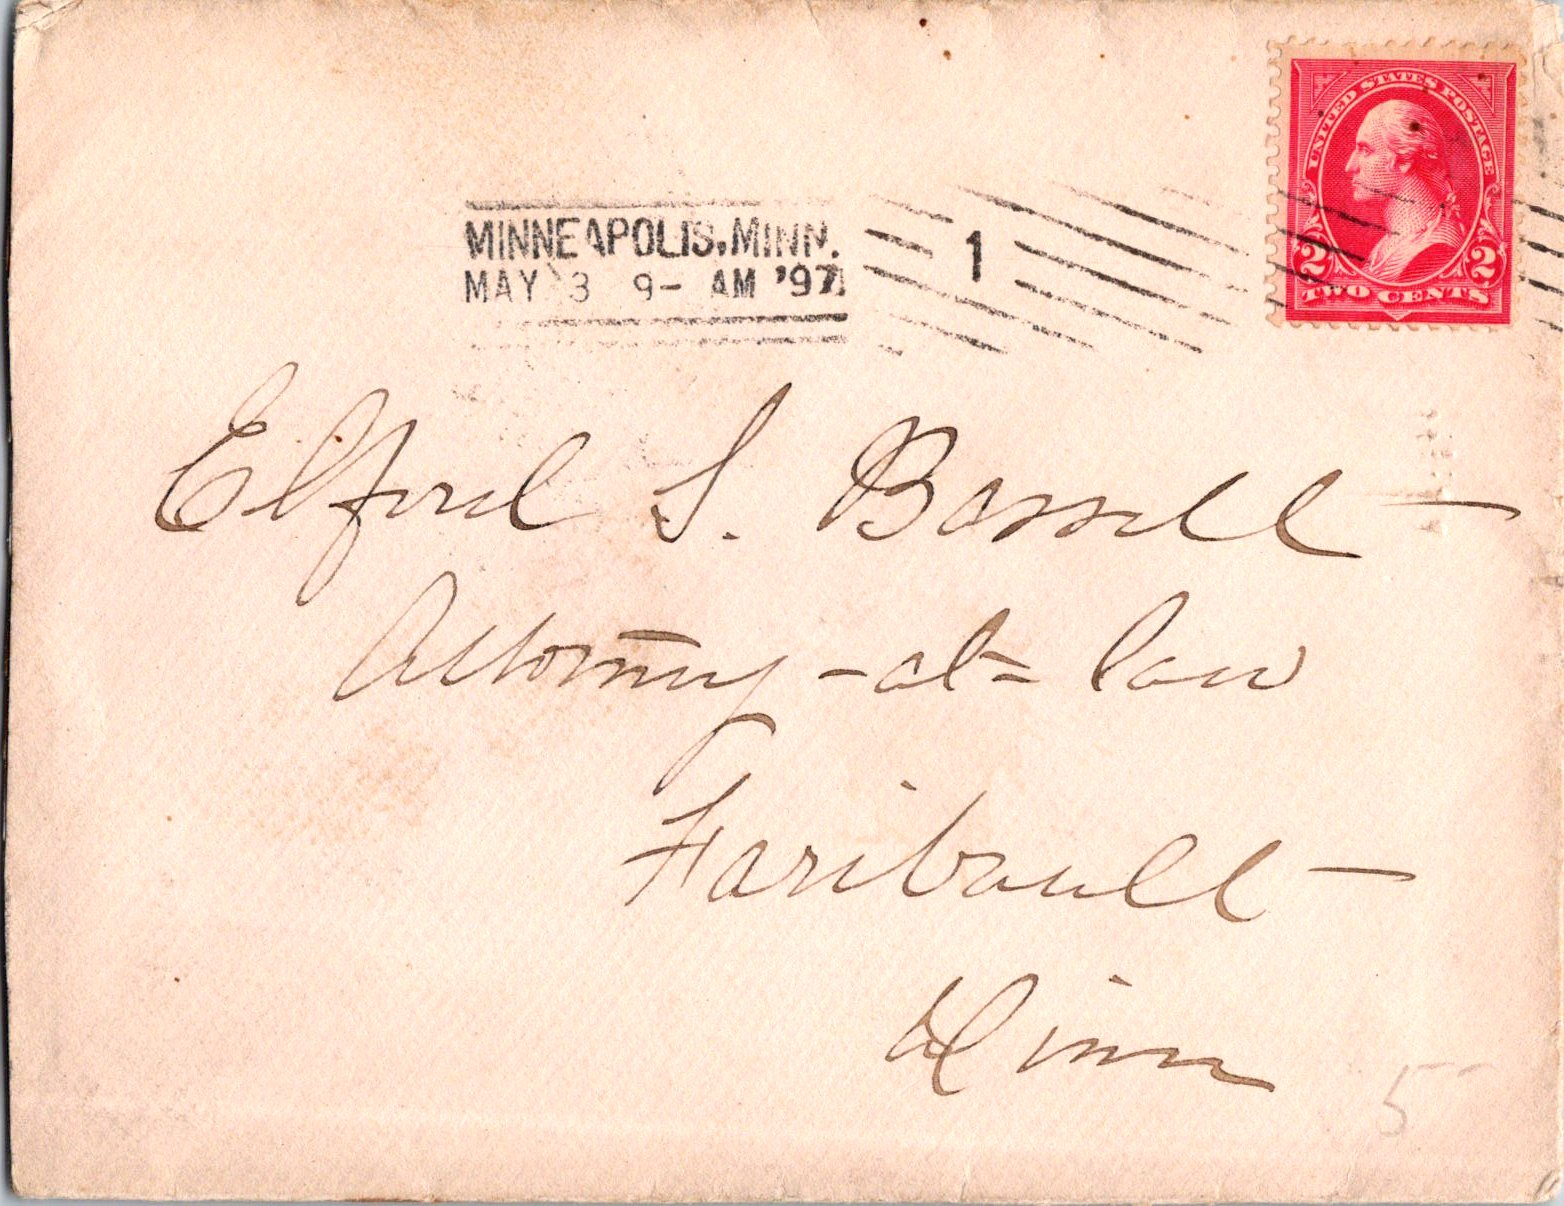 UNITED STATES POSTAGE
2 2
TWO CENTS
MINNEAPOLIS, MINN.
MAY 3 9- AM '97
1
Elford S. Bassett
Attorney-at-law
Faribault
Minn
5